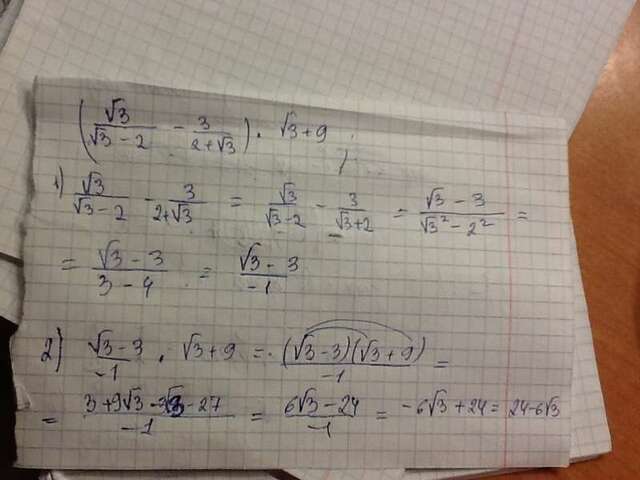 (√3/(√3-2) - 3/(2+√3)) · √3+9
1) √3/(√3-2) - 3/(2+√3) = √3/(√3-2) - 3/(√3+2) = (√3-3)/(√3²-2²) =
= (√3-3)/(3-4) = (√3-3)/-1
2) (√3-3)/-1 · √3+9 = (√3-3)(√3+9)/-1 =
= (3+9√3-3√3-27)/-1 = (6√3-24)/-1 = -6√3+24 = 24-6√3